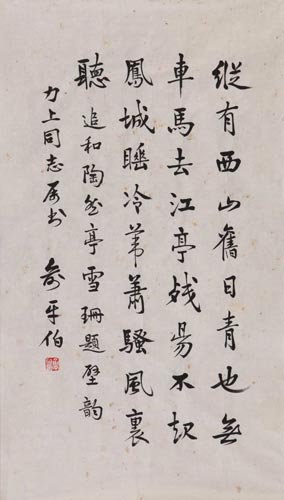 縱有西山舊日青也無
車馬去江亭殘昜不起
鳳城睡冷葦蕭騷風裏
聽 追和陶然亭雪珊題壁韵
力上同志屬书 俞平伯